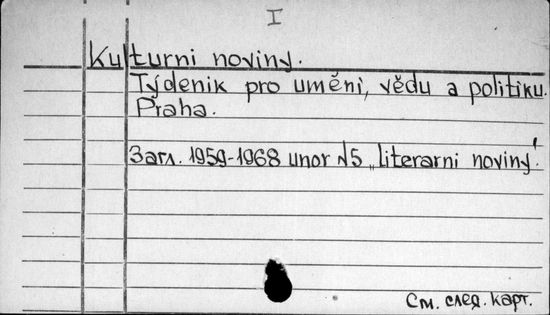 I
Kulturni noviny.
Týdenik pro uměni, vědu a politiku.
Praha.
Загл. 1959-1968 unor №5 „literarni noviný".
См. след. карт.